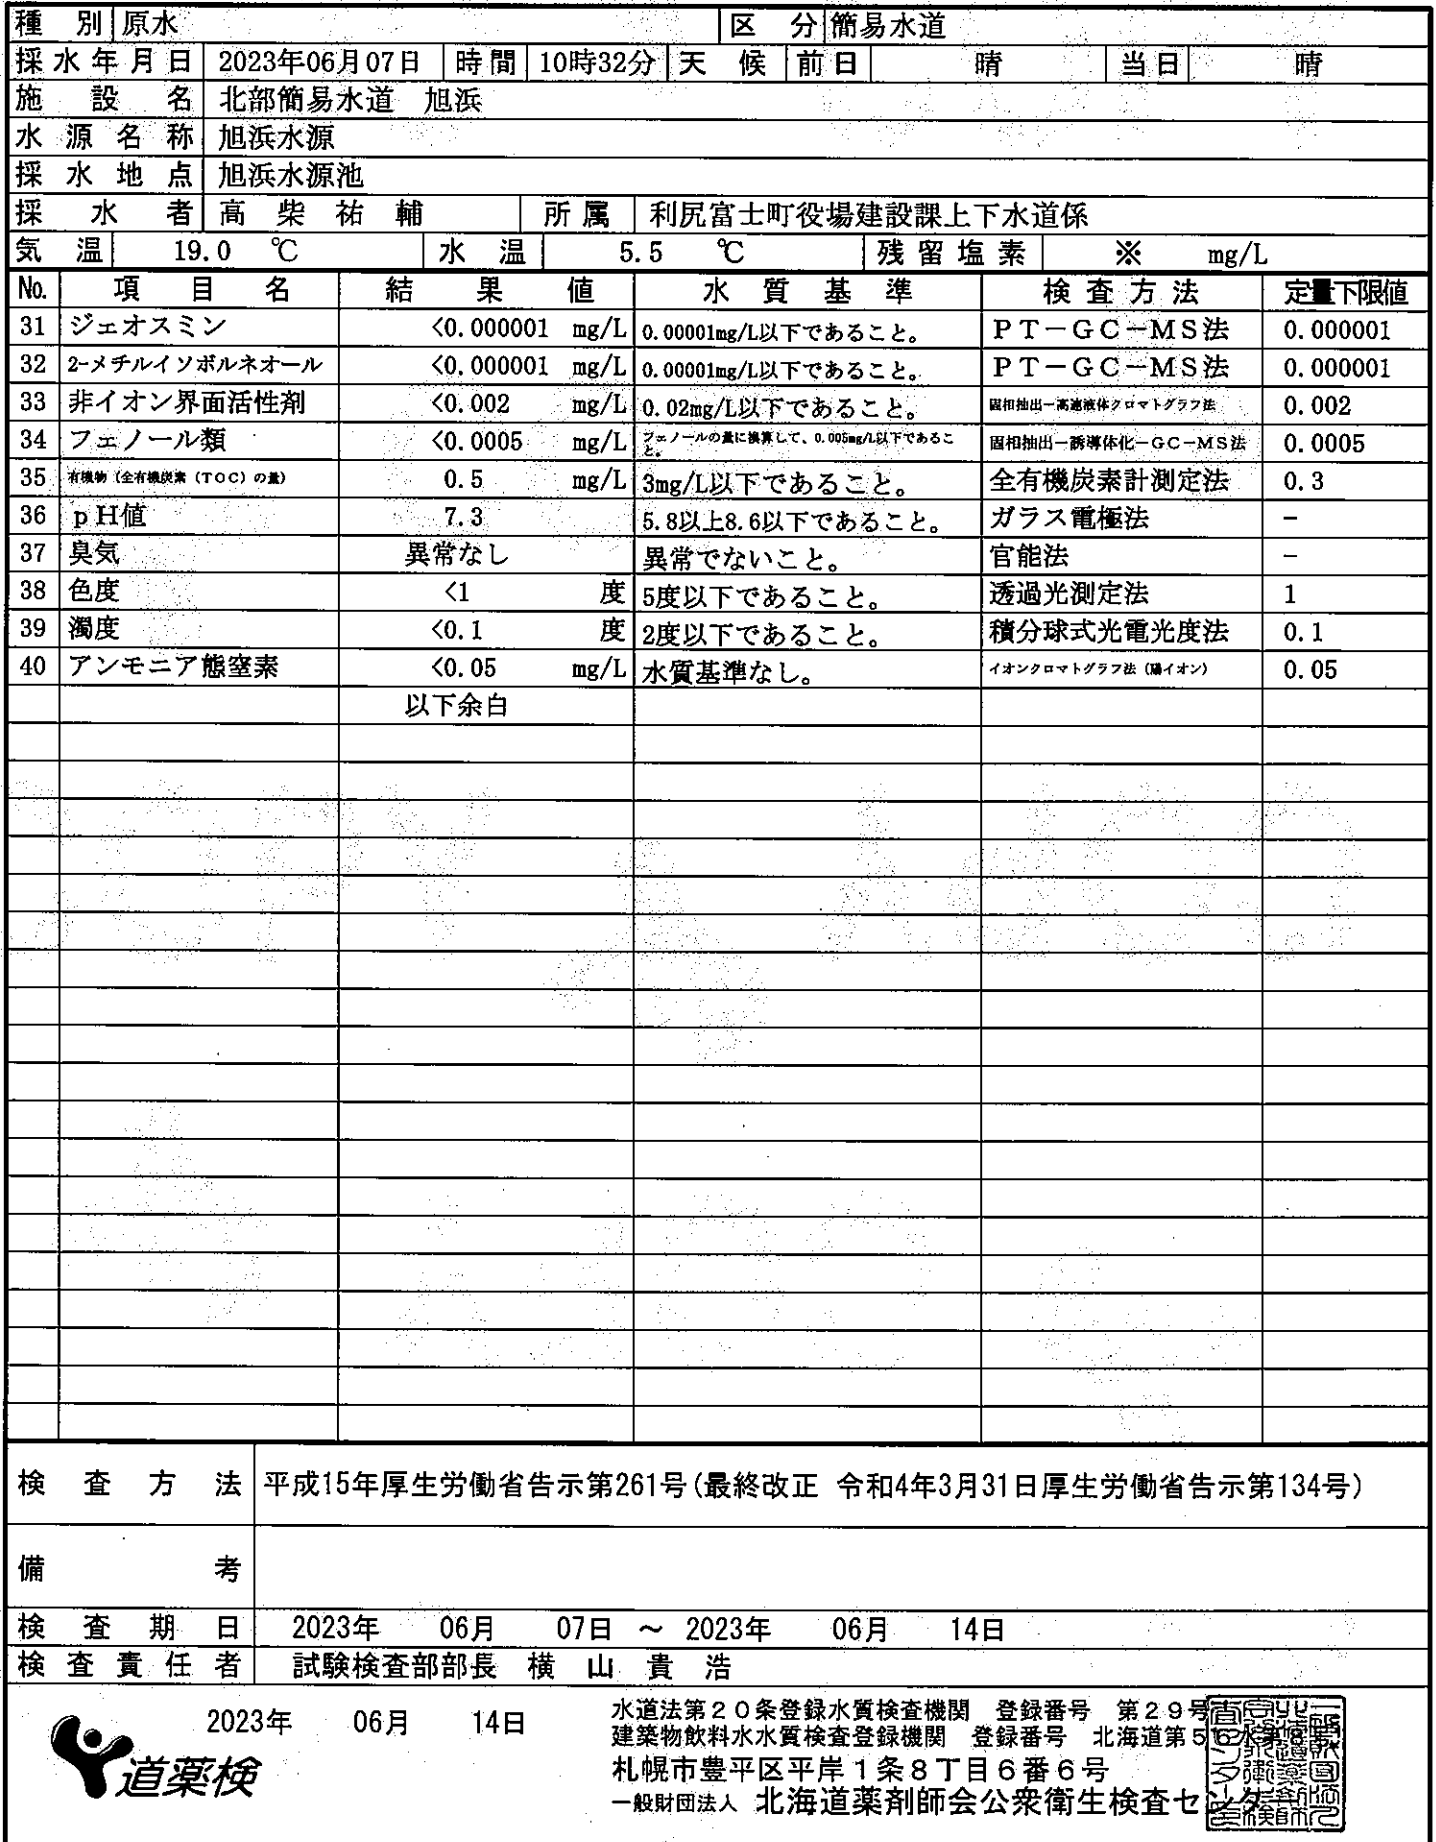 種　別 原水 区　分 簡易水道
採水年月日 2023年06月07日 時間 10時32分 天　候 前日 晴 当日 晴
施　設　名 北部簡易水道　旭浜
水源名称 旭浜水源
採水地点 旭浜水源池
採　水　者 高　柴　祐　輔 所属 利尻富士町役場建設課上下水道係
気　温 19.0 ℃ 水　温 5.5 ℃ 残留塩素 ※ mg/L
No. 項　目　名 結　果　値 水　質　基　準 検査方法 定量下限値
31 ジェオスミン <0.000001 mg/L 0.00001mg/L以下であること。 ＰＴ－ＧＣ－ＭＳ法 0.000001
32 2-メチルイソボルネオール <0.000001 mg/L 0.00001mg/L以下であること。 ＰＴ－ＧＣ－ＭＳ法 0.000001
33 非イオン界面活性剤 <0.002 mg/L 0.02mg/L以下であること。 固相抽出－高速液体クロマトグラフ法 0.002
34 フェノール類 <0.0005 mg/L フェノールの量に換算して、0.005mg/L以下であること。 固相抽出－誘導体化－ＧＣ－ＭＳ法 0.0005
35 有機物（全有機炭素（ＴＯＣ）の量） 0.5 mg/L 3mg/L以下であること。 全有機炭素計測定法 0.3
36 ｐＨ値 7.3 5.8以上8.6以下であること。 ガラス電極法 －
37 臭気 異常なし 異常でないこと。 官能法 －
38 色度 <1 度 5度以下であること。 透過光測定法 1
39 濁度 <0.1 度 2度以下であること。 積分球式光電光度法 0.1
40 アンモニア態窒素 <0.05 mg/L 水質基準なし。 イオンクロマトグラフ法（陽イオン） 0.05
以下余白
検　査　方　法 平成15年厚生労働省告示第261号(最終改正 令和4年3月31日厚生労働省告示第134号)
備　　　考
検　査　期　日 2023年 06月 07日 ～ 2023年 06月 14日
検査責任者 試験検査部部長　横　山　貴　浩
2023年 06月 14日
水道法第２０条登録水質検査機関　登録番号　第２９号
建築物飲料水水質検査登録機関　登録番号　北海道第５６水第８号
札幌市豊平区平岸１条８丁目６番６号
一般財団法人 北海道薬剤師会公衆衛生検査センター
道薬検